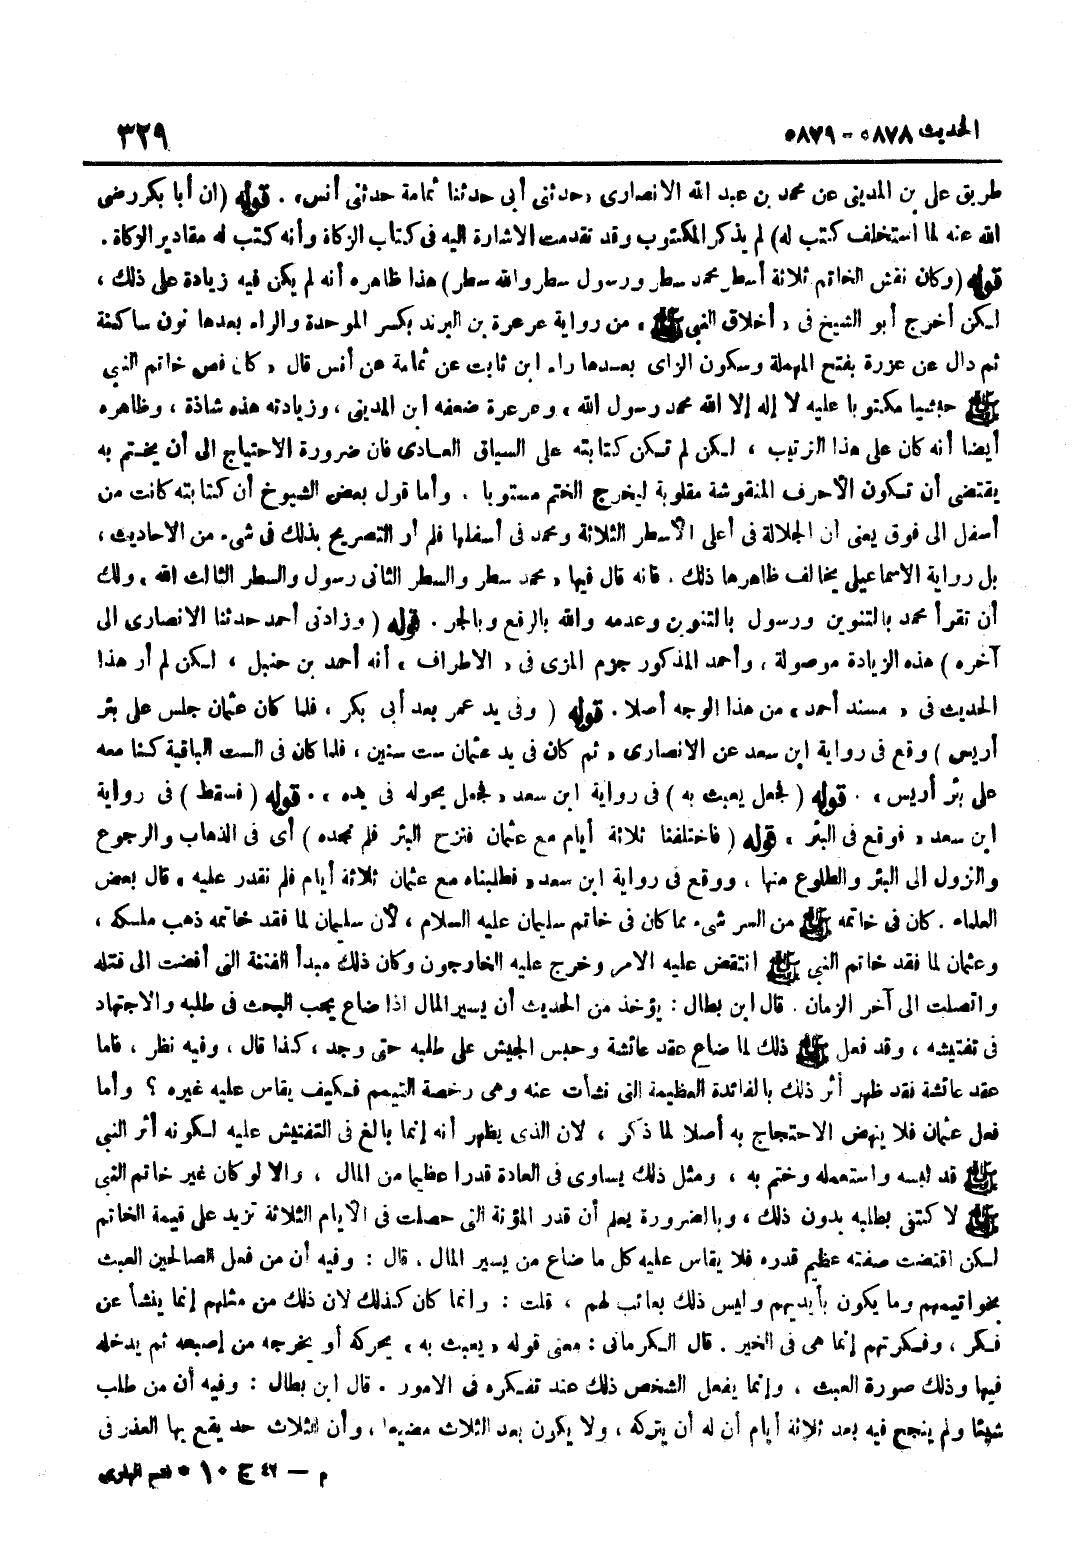 الحديث ٥٨٧٨ - ٥٨٧٩
٣٢٩
طريق على بن المدينى عن محمد بن عبد الله الانصارى «حدثنى أبى حدثنا ثمامة حدثنى أنس» . قوله (ان أبا بكر رضى
الله عنه لما استخلف كتب له) لم يذكر المكتوب وقد تقدمت الاشارة اليه فى كتاب الزكاة وأنه كتب له مقادير الزكاة .
قوله (وكان نقش الخاتم ثلاثة أسطر محمد سطر ورسول سطر والله سطر) هذا ظاهره أنه لم يكن فيه زيادة على ذلك ،
لكن أخرج أبو الشيخ فى « أخلاق النبى ﷺ » من رواية عرعرة بن البرند بكسر الموحدة والراء بعدها نون ساكنة
ثم دال عن عزرة بفتح المهملة وسكون الزاى بعدها راء ابن ثابت عن ثمامة عن أنس قال « كان فص خاتم النبى
ﷺ حبشيا مكتوبا عليه لا إله إلا الله محمد رسول الله » وعرعرة ضعفه ابن المدينى ، وزيادته هذه شاذة ، وظاهره
أيضا أنه كان على هذا الترتيب ، لكن لم تكن كتابته على السياق العادى فان ضرورة الاحتياج الى أن يختم به
يقتضى أن تكون الأحرف المنقوشة مقلوبة ليخرج الختم مستويا . وأما قول بعض الشيوخ أن كتابته كانت من
أسفل الى فوق يعنى أن الجلالة فى أعلى الأسطر الثلاثة ومحمد فى أسفلها فلم أر التصريح بذلك فى شىء من الاحاديث ،
بل رواية الاسماعيلى يخالف ظاهرها ذلك . فانه قال فيها « محمد سطر والسطر الثانى رسول والسطر الثالث الله » ولك
أن تقرأ محمد بالتنوين ورسول بالتنوين وعدمه والله بالرفع وبالجر . قوله ( وزادنى أحمد حدثنا الانصارى الى
آخره ) هذه الزيادة موصولة ، وأحمد المذكور جزم المزى فى « الاطراف » أنه أحمد بن حنبل ، لكن لم أر هذا
الحديث فى « مسند أحمد » من هذا الوجه أصلا . قوله ( وفى يد عمر بعد أبى بكر ، فلما كان عثمان جلس على بئر
أريس ) وقع فى رواية ابن سعد عن الانصارى « ثم كان فى يد عثمان ست سنين ، فلما كان فى الست الباقية كنا معه
على بئر أريس » . قوله ( فجعل يعبث به ) فى رواية ابن سعد « فجعل يحوله فى يده » . قوله ( فسقط ) فى رواية
ابن سعد « فوقع فى البئر » قوله ( فاختلفنا ثلاثة أيام مع عثمان فنزح البئر فلم نجده ) أى فى الذهاب والرجوع
والنزول الى البئر والطلوع منها . ووقع فى رواية ابن سعد « فطلبناه مع عثمان ثلاثة أيام فلم نقدر عليه » قال بعض
العلماء . كان فى خاتمه ﷺ من السر شىء مما كان فى خاتم سليمان عليه السلام ، لأن سليمان لما فقد خاتمه ذهب ملكه ،
وعثمان لما فقد خاتم النبى ﷺ انتقض عليه الامر وخرج عليه الخارجون وكان ذلك مبدأ الفتنة التى أفضت الى قتله
واتصلت الى آخر الزمان . قال ابن بطال : يؤخذ من الحديث أن يسير المال اذا ضاع يجب البحث فى طلبه والاجتهاد
فى تفتيشه ، وقد فعل ﷺ ذلك لما ضاع عقد عائشة وحبس الجيش على طلبه حتى وجد ، كذا قال ، وفيه نظر ، فاما
عقد عائشة فقد ظهر أثر ذلك بالفائدة العظيمة التى نشأت عنه وهى رخصة التيمم فكيف يقاس عليه غيره ؟ وأما
فعل عثمان فلا ينهض الاحتجاج به أصلا لما ذكر ، لان الذى يظهر أنه إنما بالغ فى التفتيش عليه لكونه أثر النبى
ﷺ قد لبسه واستعمله وختم به ، ومثل ذلك يساوى فى العادة قدرا عظيما من المال ، والا لو كان غير خاتم النبى
ﷺ لاكتفى بطلبه بدون ذلك ، وبالضرورة يعلم أن قدر المؤنة التى حصلت فى الأيام الثلاثة تزيد على قيمة الخاتم
لكن اقتضت صفته عظيم قدره فلا يقاس عليه كل ما ضاع من يسير المال . قال : وفيه أن من فعل الصالحين العبث
بخواتيمهم وما يكون بأيديهم وليس ذلك بعائب لهم ، قلت : وانما كان كذلك لان ذلك من مثلهم إنما ينشأ عن
فكر ، وفكرتهم إنما هى فى الخير . قال الكرمانى : معنى قوله « يعبث به » يحركه أو يخرجه من إصبعه ثم يدخله
فيها وذلك صورة العبث ، وإنما يفعل الشخص ذلك عند تفكره فى الامور . قال ابن بطال : وفيه أن من طلب
شيئا ولم ينجح فيه بعد ثلاثة أيام أن له أن يتركه ، ولا يكون بعد الثلاث مضيعا ، وأن الثلاث حد يقع بها العذر فى
م — ٤٢ ج ١٠ * فتح البارى